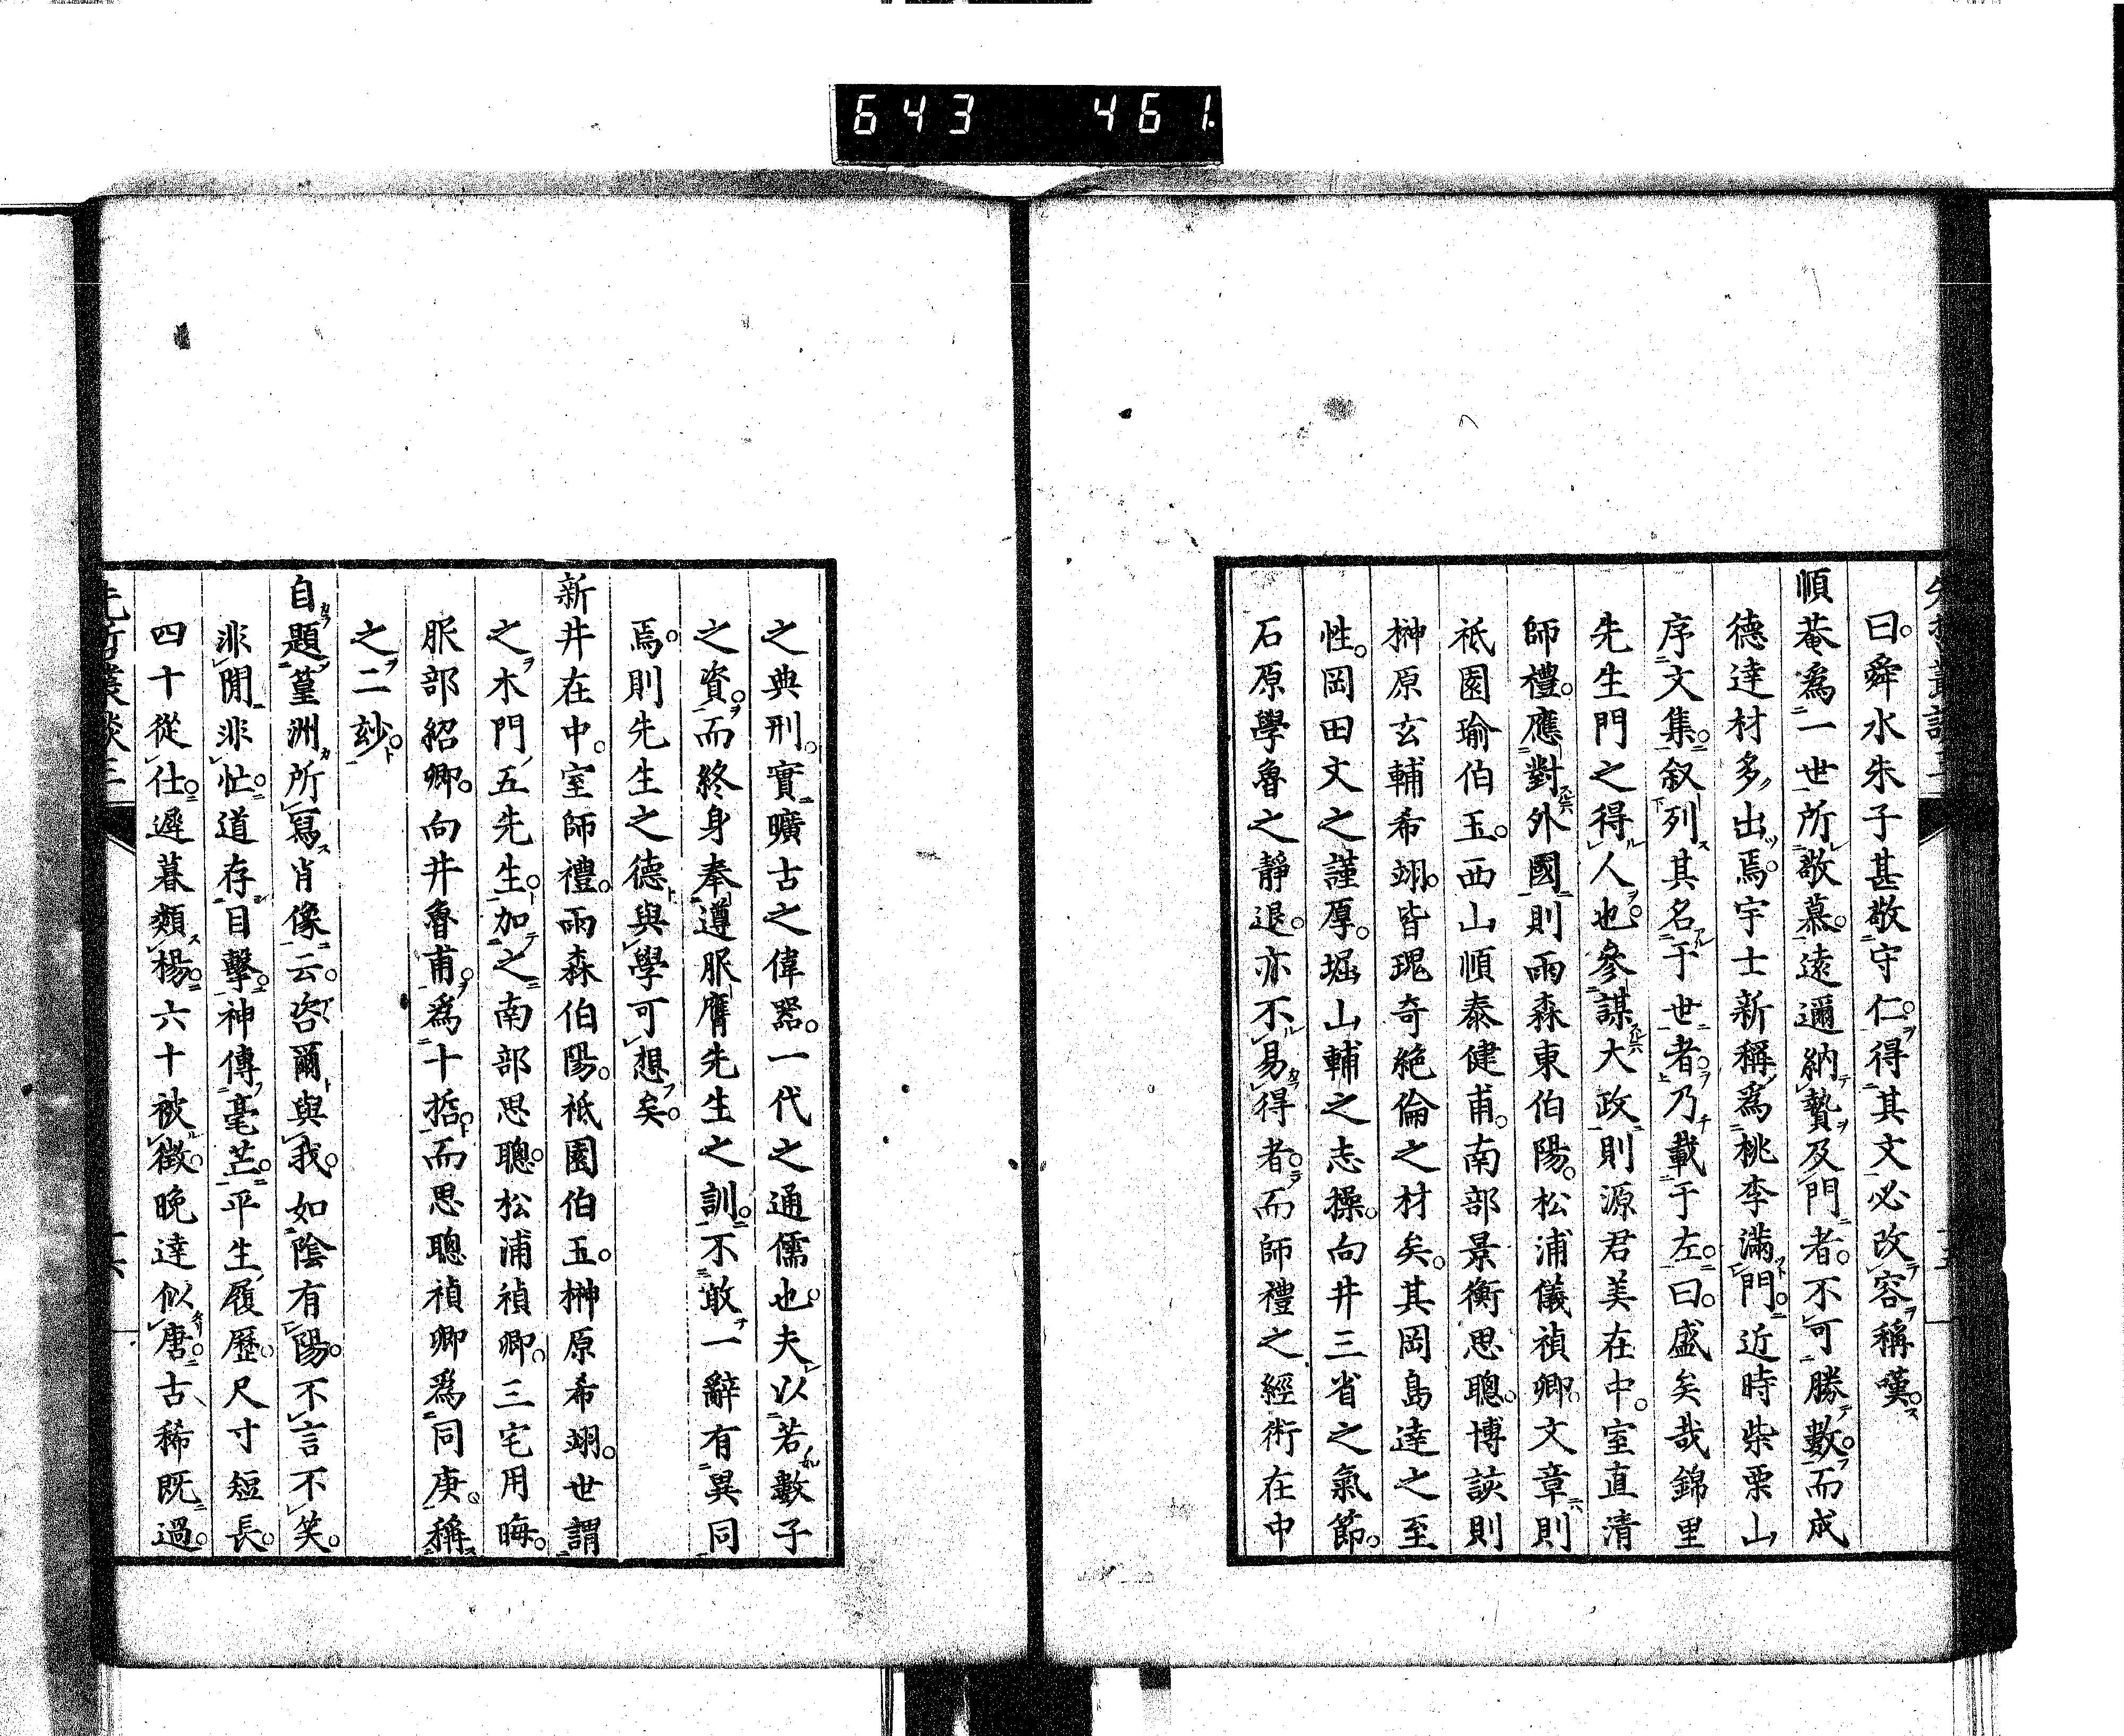 643 461
曰。舜水朱子甚敬守仁。得其文必改容稱嘆。
順菴爲一世所敬慕。遠邇納贄及門者。不可勝數。而成
德達材多出焉。宇士新稱爲桃李滿門。近時柴栗山
序文集。叙列其名于世者。乃載于左。曰。盛矣哉錦里
先生門之得人也。參謀大政則源君美在中。室直清
師禮。應對外國則雨森東伯陽。松浦儀禎卿。文章則
祇園瑜伯玉。西山順泰健甫。南部景衡思聰。博該則
榊原玄輔希翊。皆瑰奇絶倫之材矣。其岡島達之至
性。岡田文之謹厚。堀山輔之志操。向井三省之氣節。
石原學魯之靜退。亦不易得者。而師禮之經術在中
之典刑。實曠古之偉器。一代之通儒也。夫以若數子
之資。而終身奉遵服膺先生之訓。不敢一辭有異同
焉。則先生之德與學可想矣。
新井在中。室師禮。雨森伯陽。祇園伯玉。榊原希翊。世謂
之木門五先生。加之南部思聰。松浦禎卿。三宅用晦。
服部紹卿。向井魯甫。爲十哲。而思聰禎卿爲同庚。稱
之二玅。
自題篁洲所寫肖像云。咨爾與我。如陰有陽。不言不笑。
非閒非忙。道存目擊。神傳毫芒。平生履歷。尺寸短長。
四十從仕。遲暮類楊。六十被徵。晩達似唐。古稀既過。
先哲叢談三